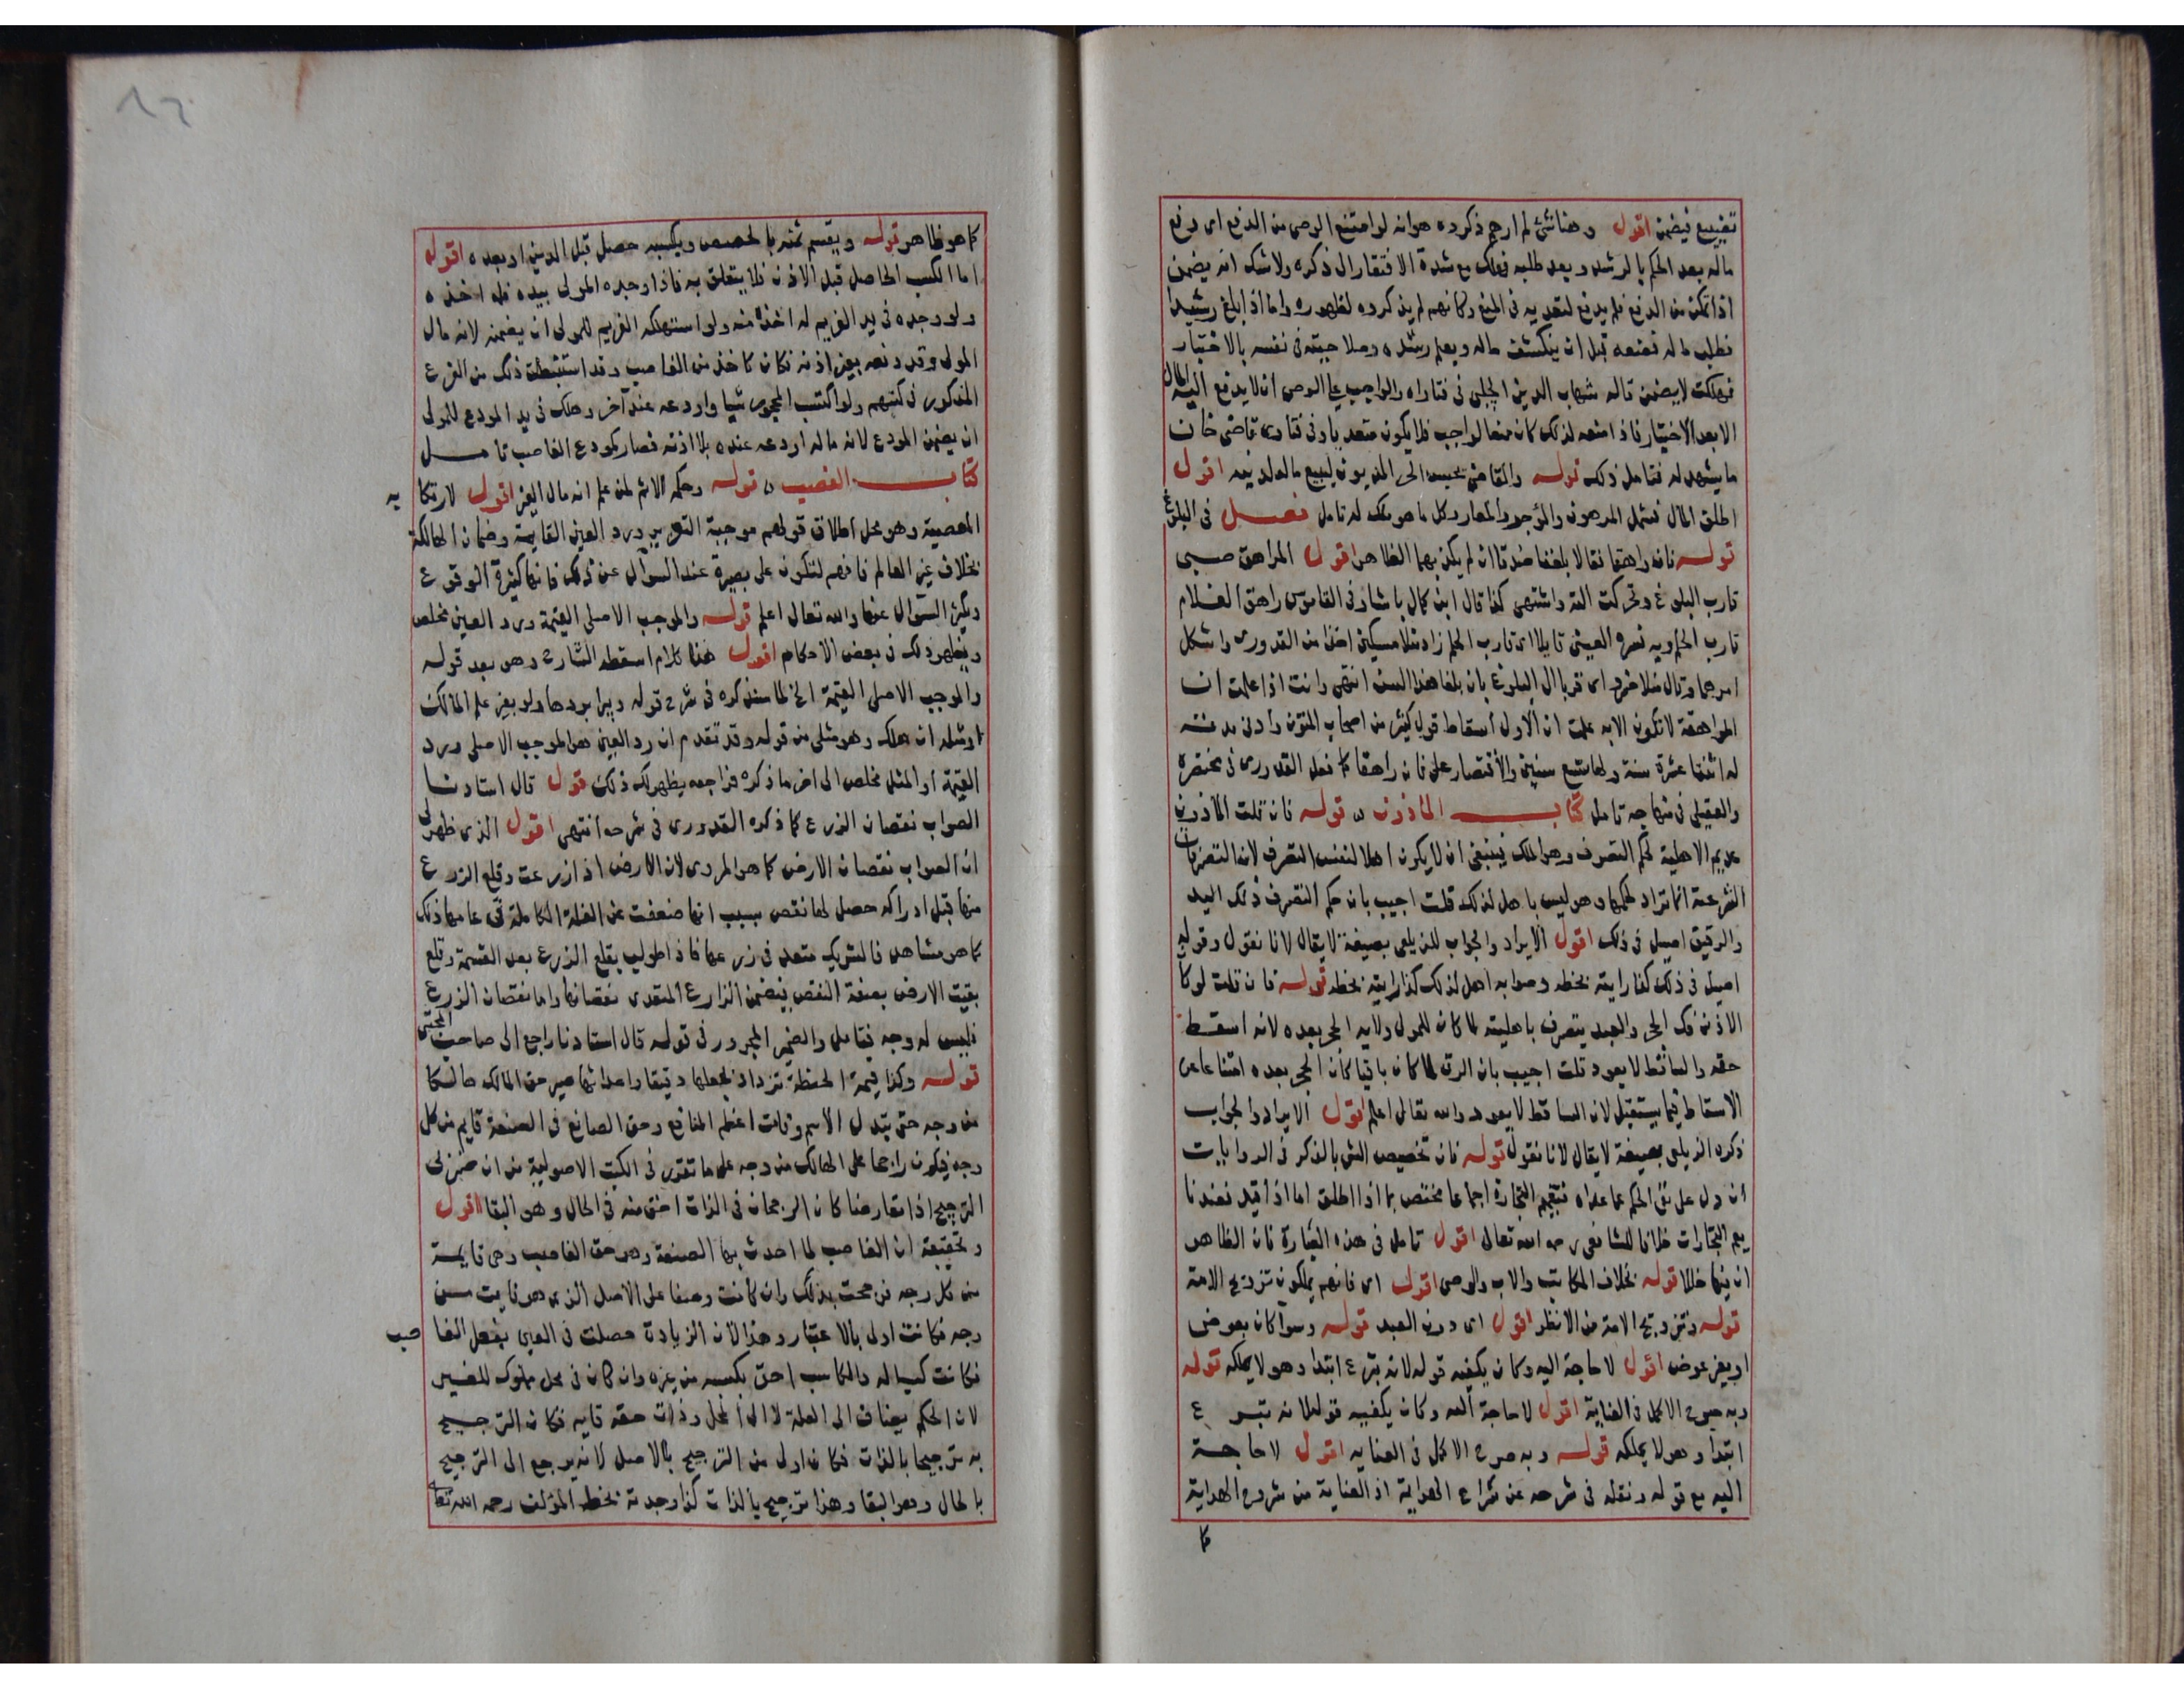 تضييع فيضمن اقول وهنا شئ لم ارهم ذكروه هو انه لو امتنع الوصى من الدفع اى دفع
ماله بعد الحكم بالرشد وبعد طلبه فهلك مع شدة الافتقار الى ذكره ولا شك انه يضمن
اذا تمكن من الدفع فلم يدفع لتعديه فى المنع وكانهم لم يذكروه لظهوره واما اذا بلغ رشيدا
فطلب ماله فمنعه قبل ان ينكشف ماله ويعلم رشده وصلاحيته فى نفسه بالاختبار
فهلكت لا يضمن قاله شهاب الدين الچلبى فى فتاواه والواجب على الوصى ان لا يدفع اليه المال
الا بعد الاختبار فاذا منعه لذلك كان منعا لواجب فلا يكون متعديا وفى فتاوى قاضى خان
ما يشهد له فتامل ذلك قوله والقاضى يحبس الحر المديون ليبيع ماله لدينه اقول
اطلق المال فشمل المرهون والمؤجر والمعار وكل ما هو ملك له تامل فصل فى البلوغ
قوله فان راهقا فقالا بلغنا صدقا ان لم يكذبهما الظاهر اقول المراهق صبى
قارب البلوغ وتحركت الته واشتهى كذا قال ابن كمال باشا وفى القاموس راهق الغلام
قارب الحلم وبه فسره العينى قايلا اى قارب الحلم زاد منلا مسكين اخذا من القدورى واشكل
امرهما وقال منلا خسرو اى قربا الى البلوغ بان بلغا هذا السن انتهى وانت اذا علمت ان
المراهقة لا تكون الا به علمت ان الاولى اسقاط قول كثير من اصحاب المتون وادنى مدته
له اثنتا عشرة سنة ولها تسع سنين والاقتصار على فان راهقا كما فعل القدورى فى مختصره
والعقيلى فى منهاجه تامل كتاب الماذون قوله فان قلت الماذون
عديم الاهلية لحكم التصرف وهو الملك فينبغى ان لا يكون اهلا لنفس التصرف لان التصرفات
الشرعية انما تراد لحكمها وهو ليس باهل لذلك قلت اجيب بان حكم التصرف ذلك اليد
والرقيق اصيل فى ذلك اقول الايراد والجواب للزيلعى بصيغة لا يقال لانا نقول وقوله
اصيل فى ذلك كذا رايته بخطه وصوابه اهل لذلك كذا رايته بخطه قوله فان قلت لو كا
الاذن فك الحجر والعبد يتصرف باهليته لما كان للمولى ولايه الحجر بعده لانه اسقط
حقه والساقط لا يعود قلت اجيب بان الرق لما كان باقيا كان الحجر بعده امتناعا عن
الاسقاط فيما يستقبل لان الساقط لا يعود والله تعالى اعلم اقول الايراد والجواب
ذكره الزيلعى بصيغة لا يقال لانا نقول قوله فان تخصيص الشئ بالذكر فى الروايات
ان دل على نفى الحكم عما عداه فتعميم التجارة اجماعا مختص بما اذا اطلق اما اذا قيد فعندنا
يعم التجارات خلافا للشافعى رحمه الله تعالى اقول تامل فى هذه العبارة فان الظاهر
ان فيها خللا قوله بخلاف المكاتب والاب والوصى اقول اى فانهم يملكون تزويج الامة
قوله وتزويج الامة من الانظر اقول اى دون العبد قوله وسوا كان بعوض
او بغير عوض اقول لا حاجة اليه وكان يكفيه قوله لانه تبرع ابتدا وهو لا يملكه قوله
وبه صرح الاكمل فى العناية اقول لا حاجة اليه وكان يكفيه قوله لانه تبرع
ابتدا وهو لا يملكه قوله وبه صرح الاكمل فى العنايه اقول لا حاجة
اليه مع قوله ونقله فى شرحه عن شراح الهداية اذ العناية من شروح الهداية
كما
كما هو ظاهر قوله ويقسم ثمنه بالحصص وبكسبه حصل قبل الدين او بعده اقول
اما الكسب الحاصل قبل الاذن فلا يتعلق به فاذا وجده المولى بيده فله اخذه
ولو وجده فى يد الغريم له اخذه منه ولو استهلكه الغريم للمولى ان يضمنه لانه مال
المولى وقد دفعه بغير اذنه فكان كاخذ من الغاصب وقد استنبطت ذلك من الفرع
المذكور فى كتبهم ولو اكتسب المحجور شيا واودعه عند آخر وهلك فى يد المودع للمولى
ان يضمن المودع لانه ماله اودعه عنده بلا اذنه فصار كمودع الغاصب تامل
كتاب الغصب قوله وحكمه الاثم لمن علم انه مال الغير اقول لارتكا به
المعصية وهو محل اطلاق قولهم موجبة التعزير ورد العين القايمة وضمان الهالكة
بخلاف غير العالم فافهم لتكون على بصيرة عند السوآل عن ذلك فانها كثيرة الوقوع
ويكثر السوآل عنها والله تعالى اعلم قوله والموجب الاصلى القيمة ورد العين مخلص
ويظهر ذلك فى بعض الاحكام اقول هذا كلام اسقطه الشارح وهو بعد قوله
والموجب الاصلى القيمة الخ لما سنذكره فى شرح قوله ويبرا بردها ولو بغير علم المالك
او مثله ان هلك وهو مثلى من قوله وقد تقدم ان رد العين هو الموجب الاصلى ورد
القيمة او المثل مخلص الى اخر ما ذكره فراجعه يظهر لك ذلك قوله قال استادنا
الصواب نقصان الزرع كما ذكره القدورى فى شرحه انتهى اقول الذى ظهر لى
ان الصواب نقصان الارض كما هو المروى لان الارض اذا زرعت وقلع الزرع
منها قبل ادراكه حصل لها نقص بسبب انها ضعفت عن الغلة الكاملة فى عامها ذلك
كما هو مشاهد فالشريك متعد فى زرعها فاذا طولب بقلع الزرع بعد القسمة وقلع
بقيت الارض بصفة النقص فيضمن الزارع المتعدى نقصانها واما نقصان الزرع
فليس له وجه فتامل والضمير المجرور فى قوله قال استادنا راجع الى صاحب المجتبى
قوله وكذا قيمة الحنطة تزداد بجعلها دقيقا واحداثها صير حق المالك هالكا
من وجه حتى تبدل الاسم وفات اعظم المنافع وحق الصانع فى الصنعة قايم من كل
وجه فيكون راجحا على الهالك من وجه على ما تقرر فى الكتب الاصولية من ان ضربى
الترجيح اذا تعارضا كان الرجحان فى الذات احق منه فى الحال وهو البقا اقول
وتحقيقه ان الغاصب لما احدث بها الصنعة وهو حق الغاصب وهى قايمة
من كل وجه فرجحت بذلك وان كانت وصفا على الاصل الذى هو فايت من
وجه فكانت اولى بالاعتبار وهذا لان الزيادة حصلت فى العين بفعل الغا صب
فكانت كسبا له والكاسب احق بكسبه من غيره وان كان فى محل مملوك للغير
لان الحكم يضاف الى العلة لا الى المحل وذات حقه قايم فكان الترجيح
به ترجيحا بالذات فكان اولى من الترجيح بالاصل لانه يرجع الى الترجيح
بالحال وهو البقا وهذا ترجيح بالذات كذا وجدته بخط المؤلف رحمه الله تعالى